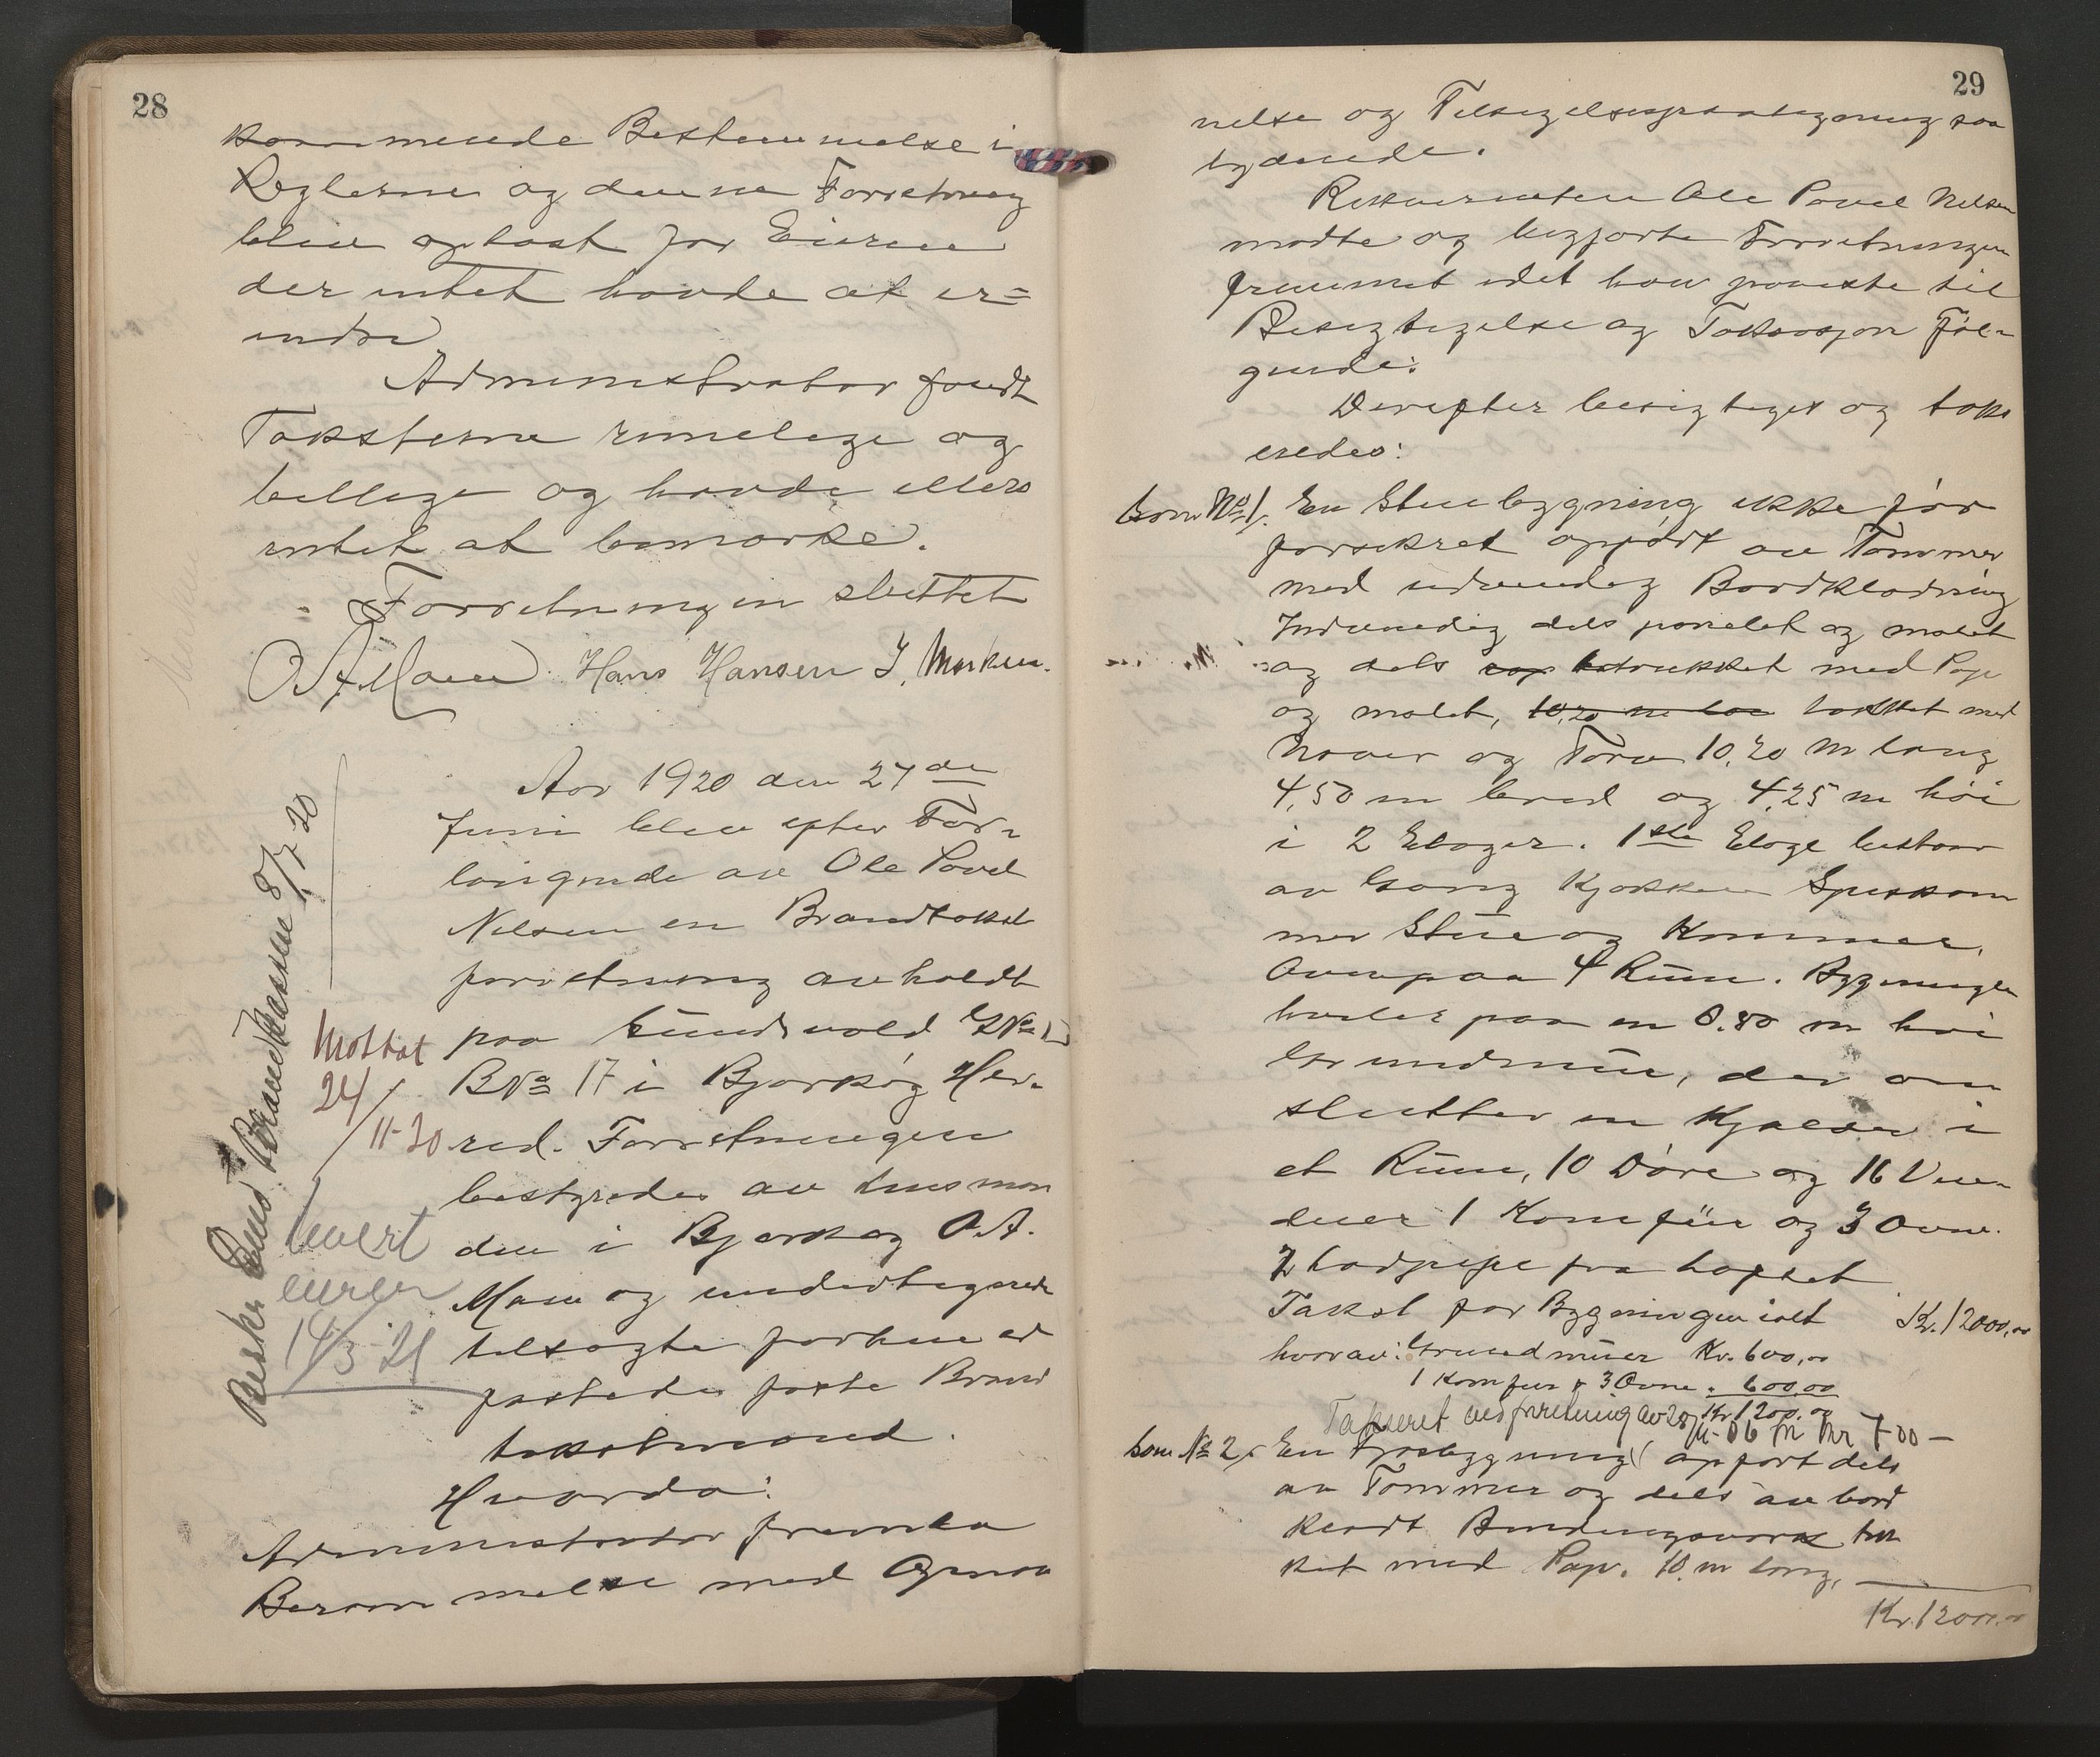 28
kommende Bestemmelse i
Reglerne og denne Forretning
blev oplæst for Eieren
der intet havde at er=
indre
Administrator fandt
Taksterne rimelige og
billige og havde ellers
intet at bemærke.
Forretningen sluttet
O A Moen Hans Hansen J. Markus.
Aar 1920 den 27de
Juni blev efter For-
langende av Ole Povel
Nilsen en Brandtakst
forretning avholdt
paa Sundsvold GNo
BNo 17 i Bjarkøy Her-
red. Forretningen
bestyredes av Lensman
den i Bjarkøy O.A.
Moen og undertegnede
tilsagte forhen ed
fæstede faste Brand
takstmænd.
Hvorda:
Administrator fremla
Berammelse med Ogsaa
Beskr. send Brandkassen 8/7 20
Mottat
24/11-20
levert
eieren
14/3 21
29
nelse og Tilsigelsespaategning saa
lydende.
Rekvirenten Ole Povel Nilsen
mødte og begjærte Forretningen
fremmet idet han paaviste til
Besigtigelse og Taksasjon Føl-
gende:
Derefter besigtiges og taks
eredes:
som No 1. En Stuebygning ikke før
forsikret opført av Tømmer
med udvendig Bordklædning
Indvendig dels panelet og malet
og dels betrukket med Pap
og malet, takket med
Næver og Torv 10,20 m lang
4,50 m bred og 4,25 m høi
i 2 Etager. 1ste Etage bestaar
av Gang Kjøkken Spiskam
mer Stue og Kammer,
Ovenpaa 4 Rum. Bygningen
hviler paa en 0.80 m høi
Grundmur, der om
slutter en Kjælder i
et Rum, 10 Døre og 16 Vin-
duer 1 Komfur og 3 Ovne.
2 Ladpipe fra Loftet
Takst for Bygningen ialt Kr. 12000,00
hvorav: Grundmuer Kr. 600,00
1 Komfur & 3 Ovne " 600,00
Kr 1200,00
Takseret ved forretning av 28/11-06 m Kr 700 —
som No 2. En Fjøsbygning opført dels
av Tømmer og dels av bord
klædt Bindingsværk tæk
ket med Pap. 10 m lang,
Kr. 12000.00